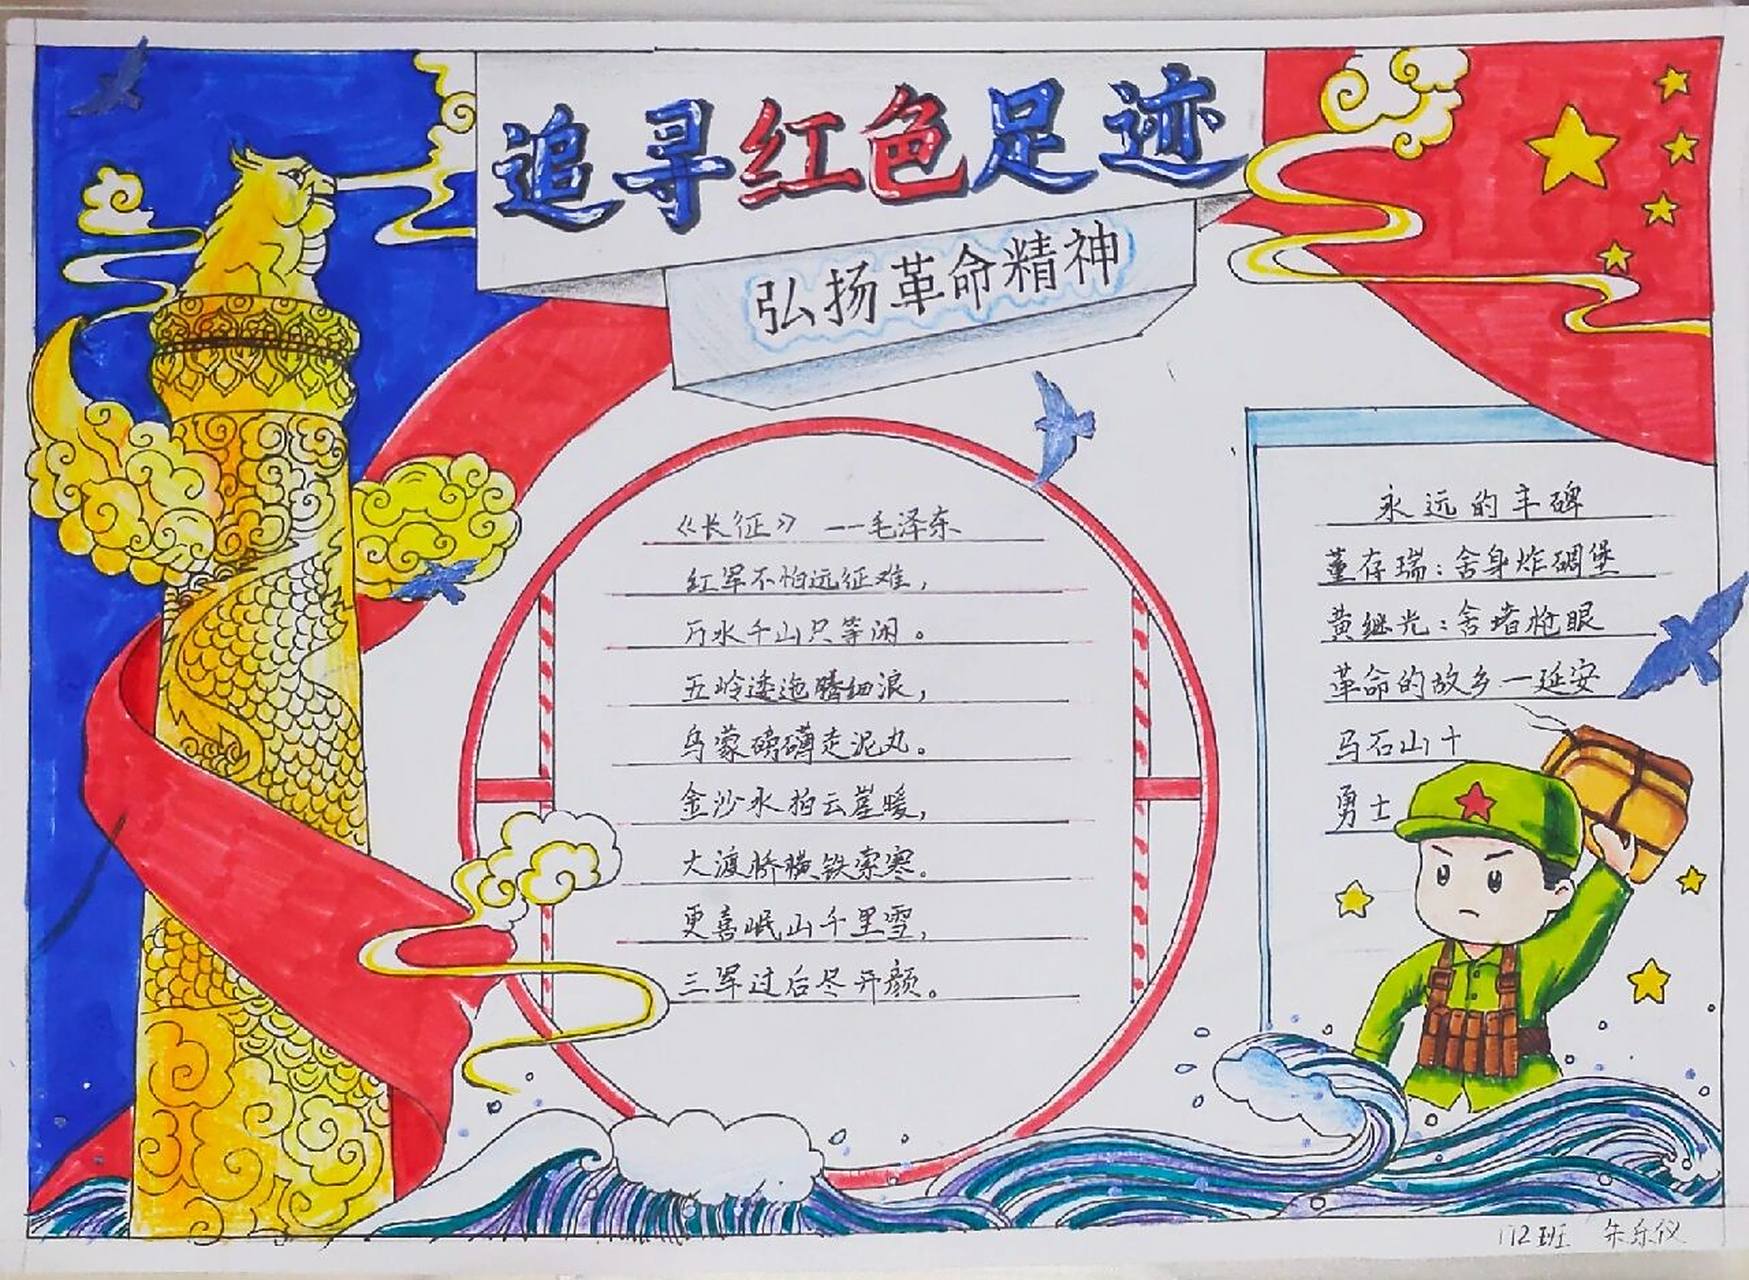 追寻红色足迹
弘扬革命精神
《长征》 ——毛泽东
红军不怕远征难，
万水千山只等闲。
五岭逶迤腾细浪，
乌蒙磅礴走泥丸。
金沙水拍云崖暖，
大渡桥横铁索寒。
更喜岷山千里雪，
三军过后尽开颜。
永远的丰碑
董存瑞：舍身炸碉堡
黄继光：舍堵枪眼
革命的故乡一延安
马石山十
勇士
112班 朱乐仪